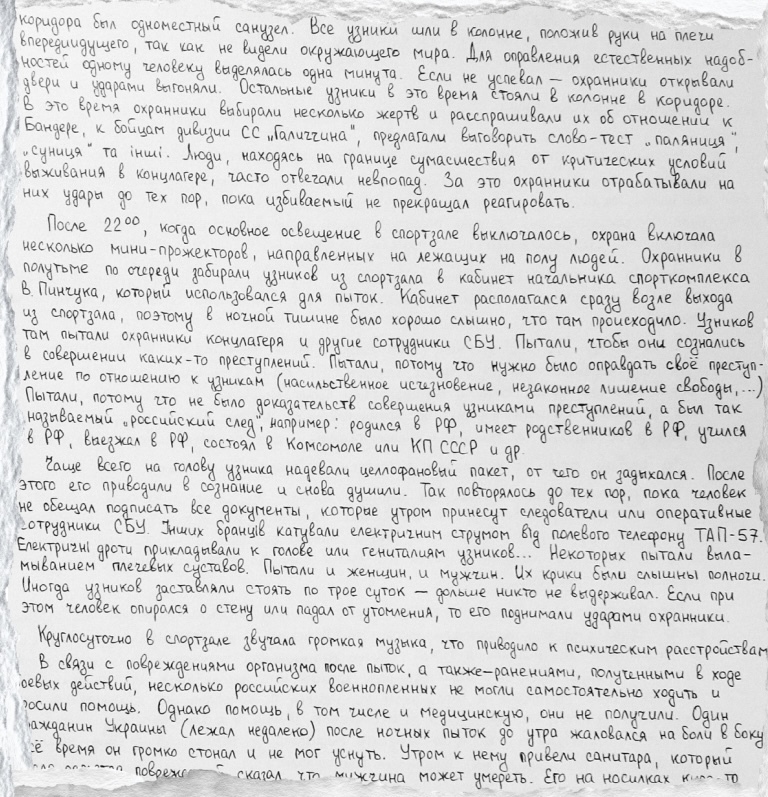 коридора был одноместный санузел. Все узники шли в колонне, положив руки на плечи
впередиидущего, так как не видели окружающего мира. Для оправления естественных надоб-
ностей одному человеку выделялась одна минута. Если не успевал — охранники открывали
двери и ударами выгоняли. Остальные узники в это время стояли в колонне в коридоре.
В это время охранники выбирали несколько жертв и расспрашивали их об отношении к
Бандере, к бойцам дивизии СС „Галиччина", предлагали выговорить слово-тест „паляниця",
„суниця" та інші. Люди, находясь на границе сумасшествия от критических условий
выживания в концлагере, часто отвечали невпопад. За это охранники отрабатывали на
них удары до тех пор, пока избиваемый не прекращал реагировать.
После 22⁰⁰, когда основное освещение в спортзале выключалось, охрана включала
несколько мини-прожекторов, направленных на лежащих на полу людей. Охранники в
полутьме по очереди забирали узников из спортзала в кабинет начальника спорткомплекса
В. Пинчука, который использовался для пыток. Кабинет располагался сразу возле выхода
из спортзала, поэтому в ночной тишине было хорошо слышно, что там происходило. Узников
там пытали охранники концлагеря и другие сотрудники СБУ. Пытали, чтобы они сознались
в совершении каких-то преступлений. Пытали, потому что нужно было оправдать своё преступ-
ление по отношению к узникам (насильственное исчезновение, незаконное лишение свободы,...)
Пытали, потому что не было доказательств совершения узниками преступлений, а был так
называемый „российский след", например: родился в РФ, имеет родственников в РФ, учился
в РФ, выезжал в РФ, состоял в Комсомоле или КП СССР и др.
Чаще всего на голову узника надевали целлофановый пакет, от чего он задыхался. После
этого его приводили в сознание и снова душили. Так повторялось до тех пор, пока человек
не обещал подписать все документы, которые утром принесут следователи или оперативные
сотрудники СБУ. Інших бранців катували електричним струмом від полевого телефону ТАП-57.
Електричні дроти прикладывали к голове или гениталиям узников... Некоторых пытали выла-
мыванием плечевых суставов. Пытали и женщин, и мужчин. Их крики были слышны полночи.
Иногда узников заставляли стоять по трое суток — дольше никто не выдерживал. Если при
этом человек опирался о стену или падал от утомления, то его поднимали ударами охранники.
Круглосуточно в спортзале звучала громкая музыка, что приводило к психическим расстройствам
В связи с повреждениями организма после пыток, а также-ранениями, полученными в ходе
боевых действий, несколько российских военнопленных не могли самостоятельно ходить и
росили помощь. Однако помощь, в том числе и медицинскую, они не получили. Один
ражданин Украины (лежал недалеко) после ночных пыток до утра жаловался на боли в боку
сё время он громко стонал и не мог уснуть. Утром к нему привели санитара, который
сказал, что мужчина может умереть. Его на носилках